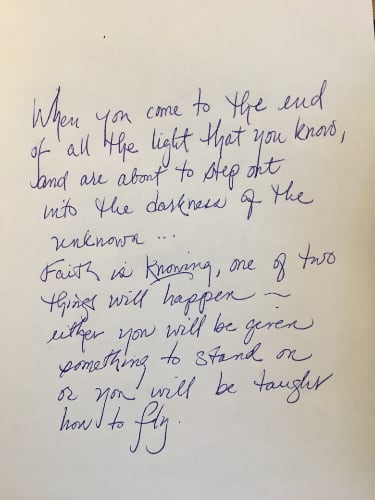 When you come to the end
of all the light that you know,
and are about to step out
into the darkness of the
unknown ...
Faith is Knowing, one of two
things will happen ~
either you will be given
something to stand on
or you will be taught
how to fly.